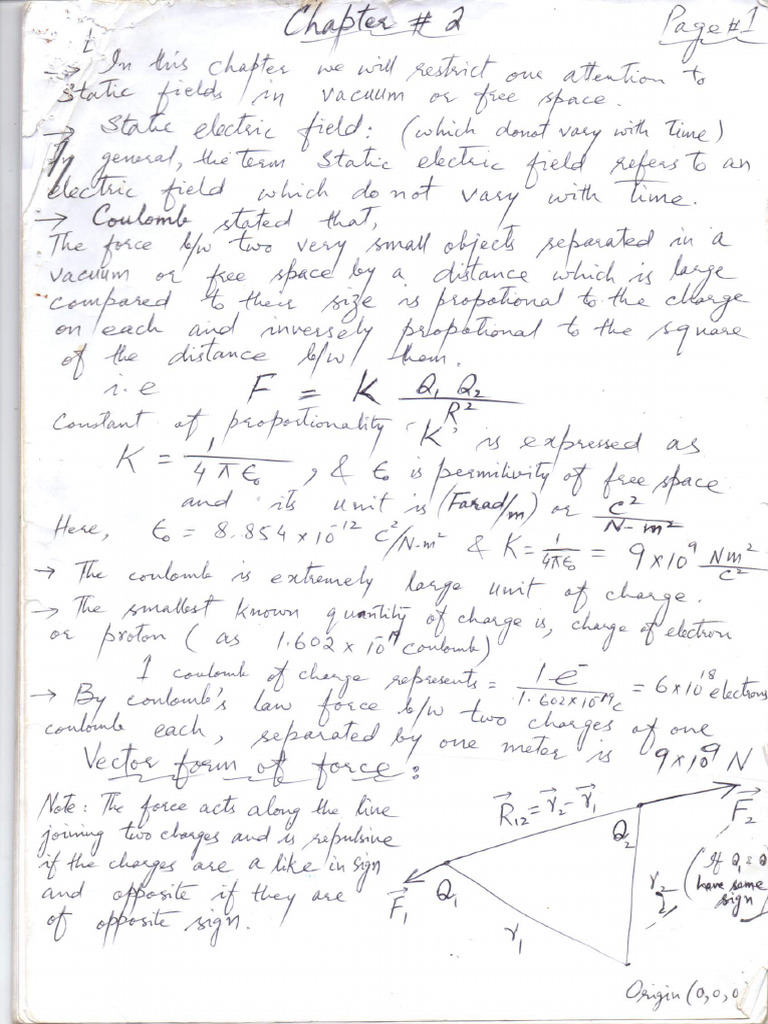 Chapter # 2
Page #1
→ In this chapter we will restrict our attention to
static fields in vacuum or free space.
→ Static electric field: (which donot vary with Time)
In general, the term static electric field refers to an
electric field which do not vary with time.
→ Coulomb stated that,
The force b/w two very small objects separated in a
vacuum or free space by a distance which is large
compared to their size is propotional to the charge
on each and inversely propotional to the square
of the distance b/w them.
i.e F = K Q₁ Q₂ / R²
Constant of proportionality 'K' is expressed as
K = 1 / 4πϵ₀ , & ϵ₀ is permitivity of free space
and its unit is (Farad/m) or C² / N-m²
Here, ϵ₀ = 8.854 × 10⁻¹² C²/N-m² & K = 1/4πϵ₀ = 9×10⁹ Nm²/C²
→ The coulomb is extremely large unit of charge.
→ The smallest known quantity of charge is, charge of electron
or proton (as 1.602 × 10⁻¹⁹ coulomb)
1 coulomb of charge represents = 1 e⁻ / 1.602×10⁻¹⁹c = 6×10¹⁸ electrons
→ By coulomb's law force b/w two charges of one
coulomb each, separated by one meter is 9×10⁹ N
Vector form of force:
Note: The force acts along the line
joining two charges and is repulsive
if the charges are a like in sign
and opposite if they are
of opposite sign.
R₁₂ = r₂ - r₁
F₂
Q₂
Q₁
F₁
r₁
r₂
(If Q₁ & Q
have same
sign)
Origin (0,0,0